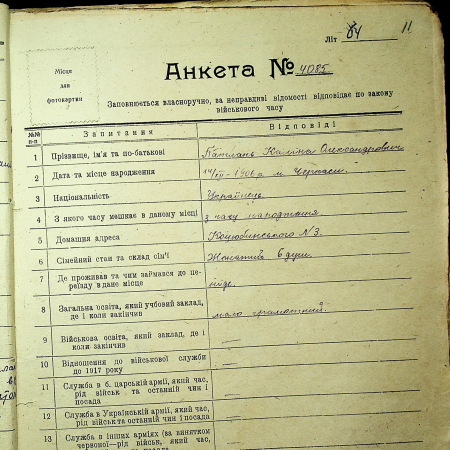 Літ 84 11
Місце
для
фотокартки
Анкета № 4085
Заповнюється власноручно, за неправдиві відомості відповідає по закону
військового часу
№№
п-п
Запитання
Відповіді
1 Прізвище, ім'я та по-батькові Каплань Калина Олександрович
2 Дата та місце народження 14/III-1906 р. м. Черкаси.
3 Національність Українець.
4 З якого часу мешкає в даному місці з часу народження
5 Домашня адреса Коцюбинського №3.
6 Сімейний стан та склад сім'ї Женатий 6 душ.
7 Де проживав та чим займався до пе-
реїзду в дане місце ніде.
8 Загальна освіта, який учбовий заклад,
де і коли закінчив мало грамотний.
9 Військова освіта, який заклад, де і
коли закінчив —
10 Відношення до військової служби
до 1917 року —
11 Служба в б. царській армії, який час,
рід військ та останній чин і
посада —
12 Служба в Українській армії, який час,
рід військ та останній чин і посада —
13 Служба в інших арміях (за винятком
червоної—рід військ, який час,